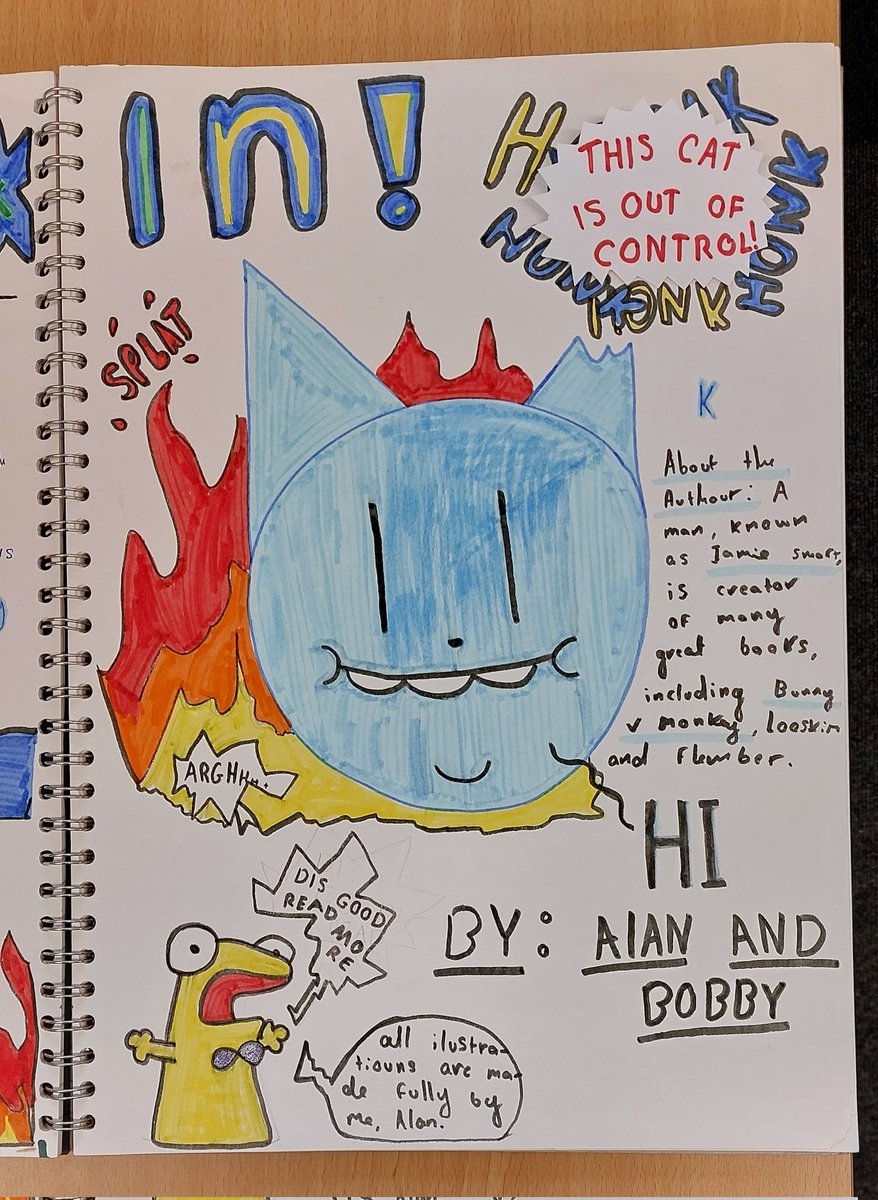 In!
HONK
HONK
HONK
HONK
THIS CAT
IS OUT OF
CONTROL!
SPLAT
K
About the
Authour: A
man, known
as Jamie smart,
is creator
of many
great books,
including Bunny
v monkey, looskin
and Flember.
ARGHHH..
HI
DIS GOOD
READ MO
RE
BY: AlAN AND
BOBBY
all ilustra-
tiouns are ma-
de fully by
me, Alan.